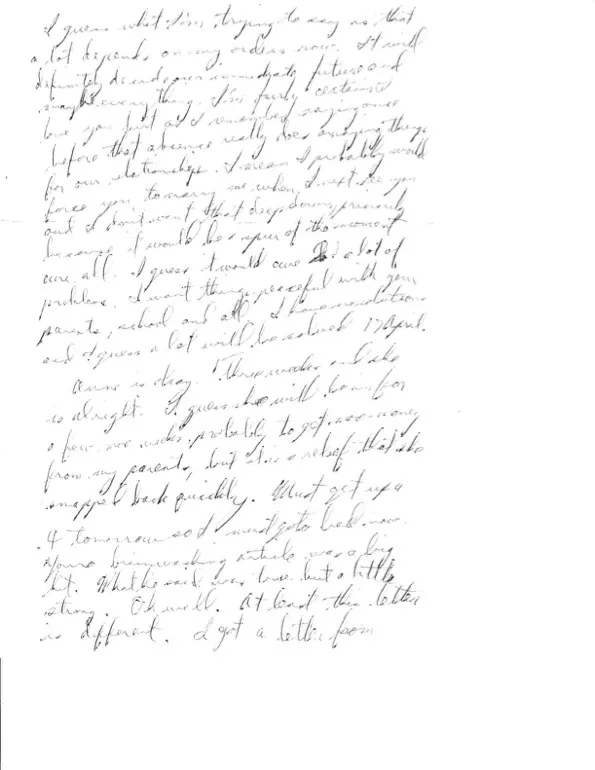 I guess what I'm trying to say is that
a lot depends on my orders now. It will
definitely decide our immediate future and
maybe everything. I'm fairly certain I
love you but as I remember saying once
before that absence really does amazing things
for our relationship. I mean I probably would
force you to marry me when I next see you
and I don't want that deep down, primarily
because it would be a spur of the moment
cure all. I guess it would cure a lot of
problems. I want things peaceful with your
parents, school and all. I have no solutions
and I guess a lot will be solved 17 April.
Anne is okay. Three weeks and she
is alright. I guess she will be in for
a few more weeks, probably to get more money
from my parents, but it is a relief that she
snapped back quickly. Must get up a
4 tomorrow so I must go to bed now.
Your brainwashing article was a big
hit. What he said was true but a little
strong. Oh well. At least this letter
is different. I got a letter from